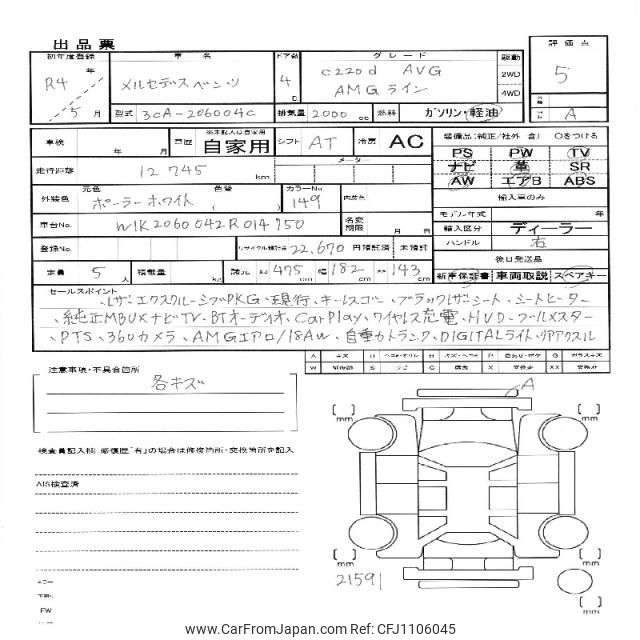 出品票
初年度登録 車名 ドア数 グレード 駆動 評価点
R4年 メルセデスベンツ 4D C220d AVG 2WD 5
5月 AMGライン 4WD
型式 3CA-206004C 排気量 2000cc 燃料 ガソリン・軽油 A
車検 年 月 車歴 未記入は自家用 自家用 シフト AT 冷房 AC 装備品(純正/社外 含) Oをつける
PS PW TV
走行距離 12745 km メーター ナビ 革 SR
AW エアB ABS
外装色 元色 ポーラーホワイト 色替 ( カラーNo 149 内装色 輸入車のみ
モデル年式 年
車台No. W1K2060042R014950 名変期限 月 日 輸入区分 ディーラー
登録No. リサイクル預託金 22,670 円預託済 未預託 ハンドル 右
後日発送品
定員 5人 積載量 kg 諸元 長さ 475cm 幅 182cm 高さ 143cm 新車保証書 車両取説 スペアキー
セールスポイント
、レザーエクスクルーシブPKG・現行・キーレスゴー・ブラックレザーシート、シートヒーター
、純正MBUXナビTV・BTオーディオ、CarPlay、ワイヤレス充電、HUD・ブルメスター
、PTS、360カメラ、AMGエアロ/18AW、自動トランク、DIGITALライト、リアアクスル
A キズ U H P G ガラスキズ
W S C 腐食 X XX
注意事項・不具合箇所
各キズ
A
検査員記入欄 修復歴「有」の場合は修復箇所・交換箇所を記入
AIS検査済
mm
mm
mm
mm
mm
21591
FW
www.CarFromJapan.com Ref: BFJ1106045